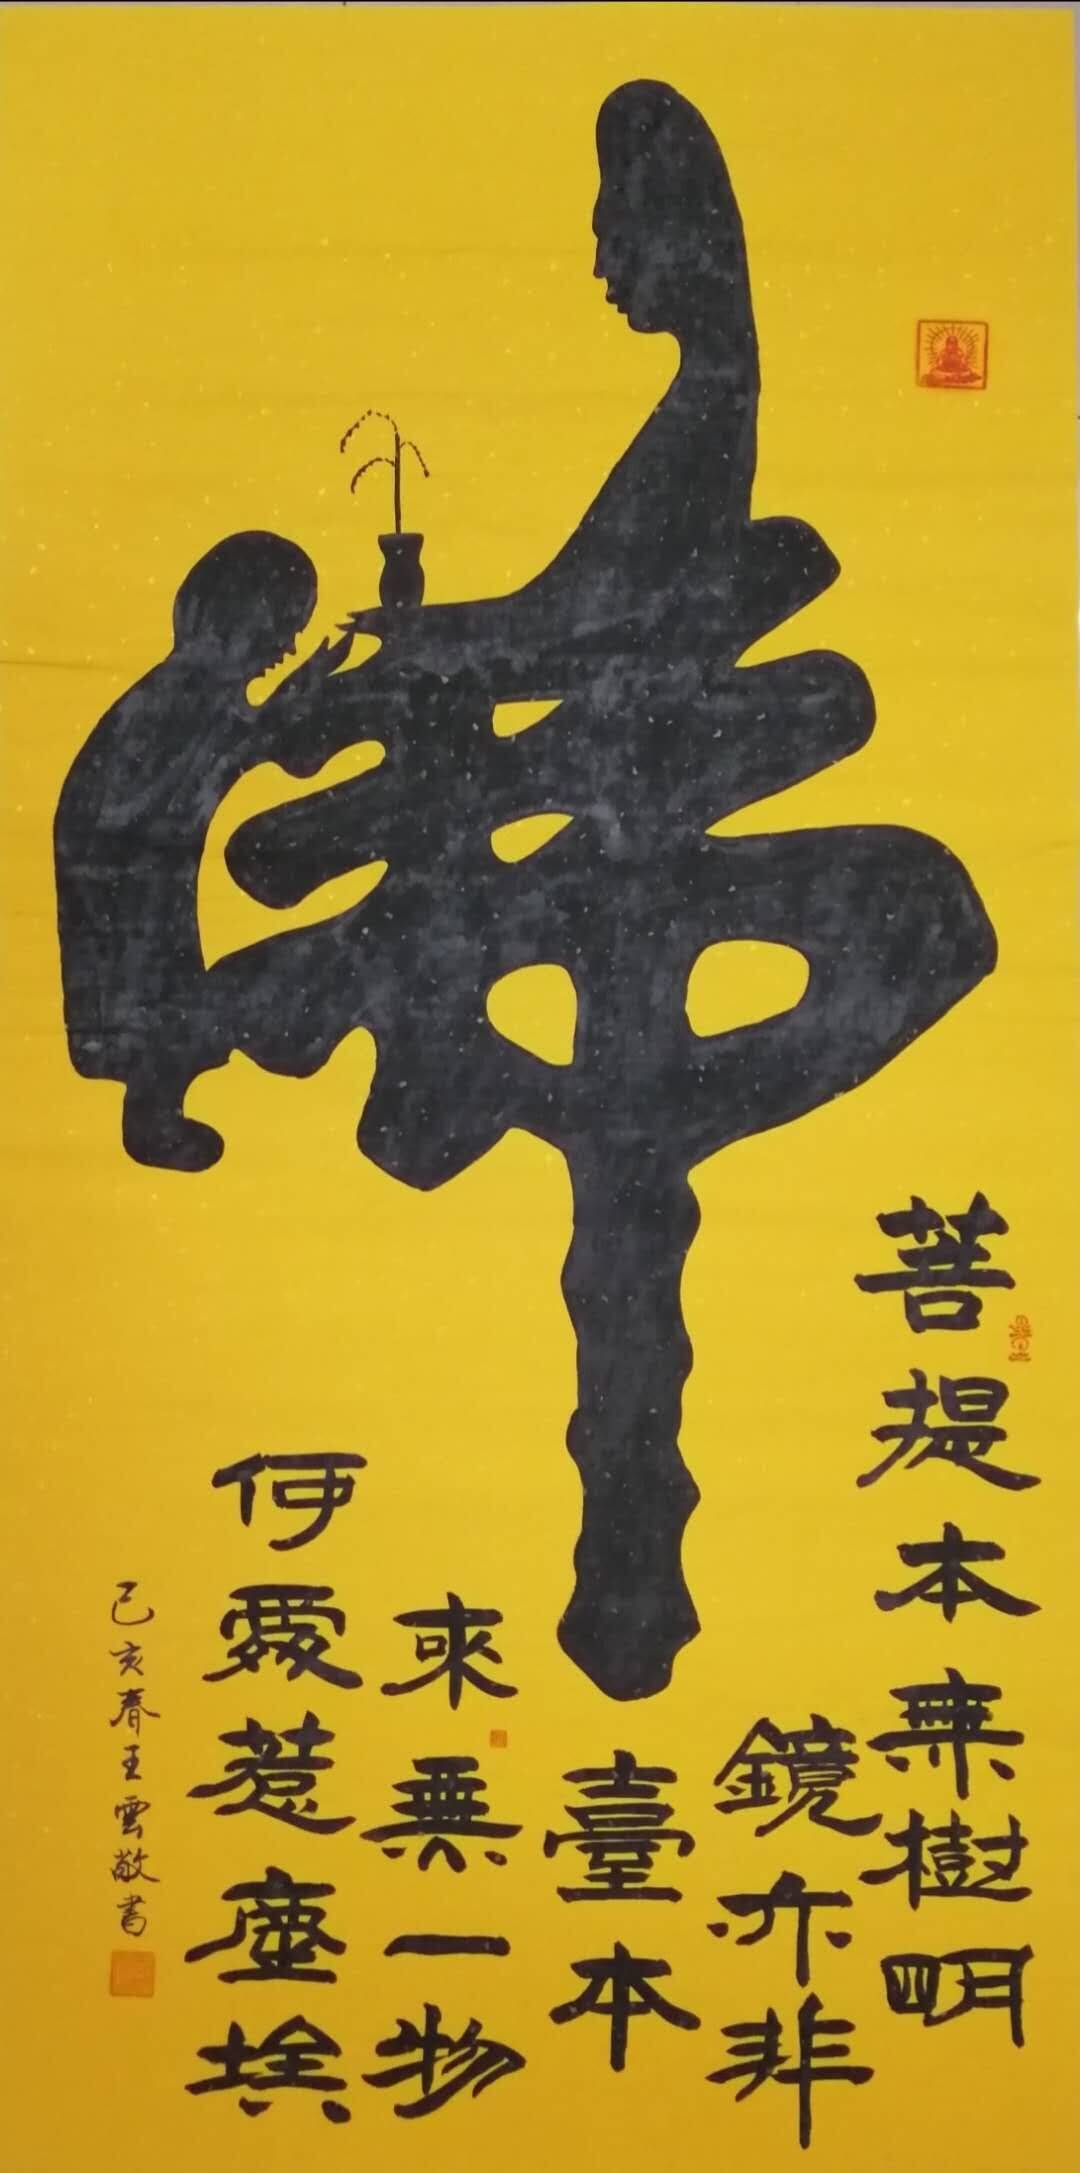 佛
菩提本無樹明
鏡亦非
臺本
來無一物
何處惹塵埃
己亥春王雲敬書